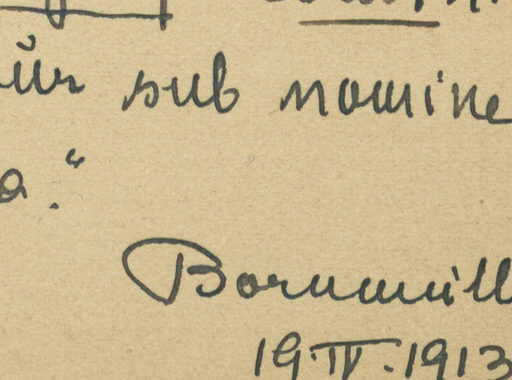 für sub nomine
a."
Bornmüll
19.IV.1913